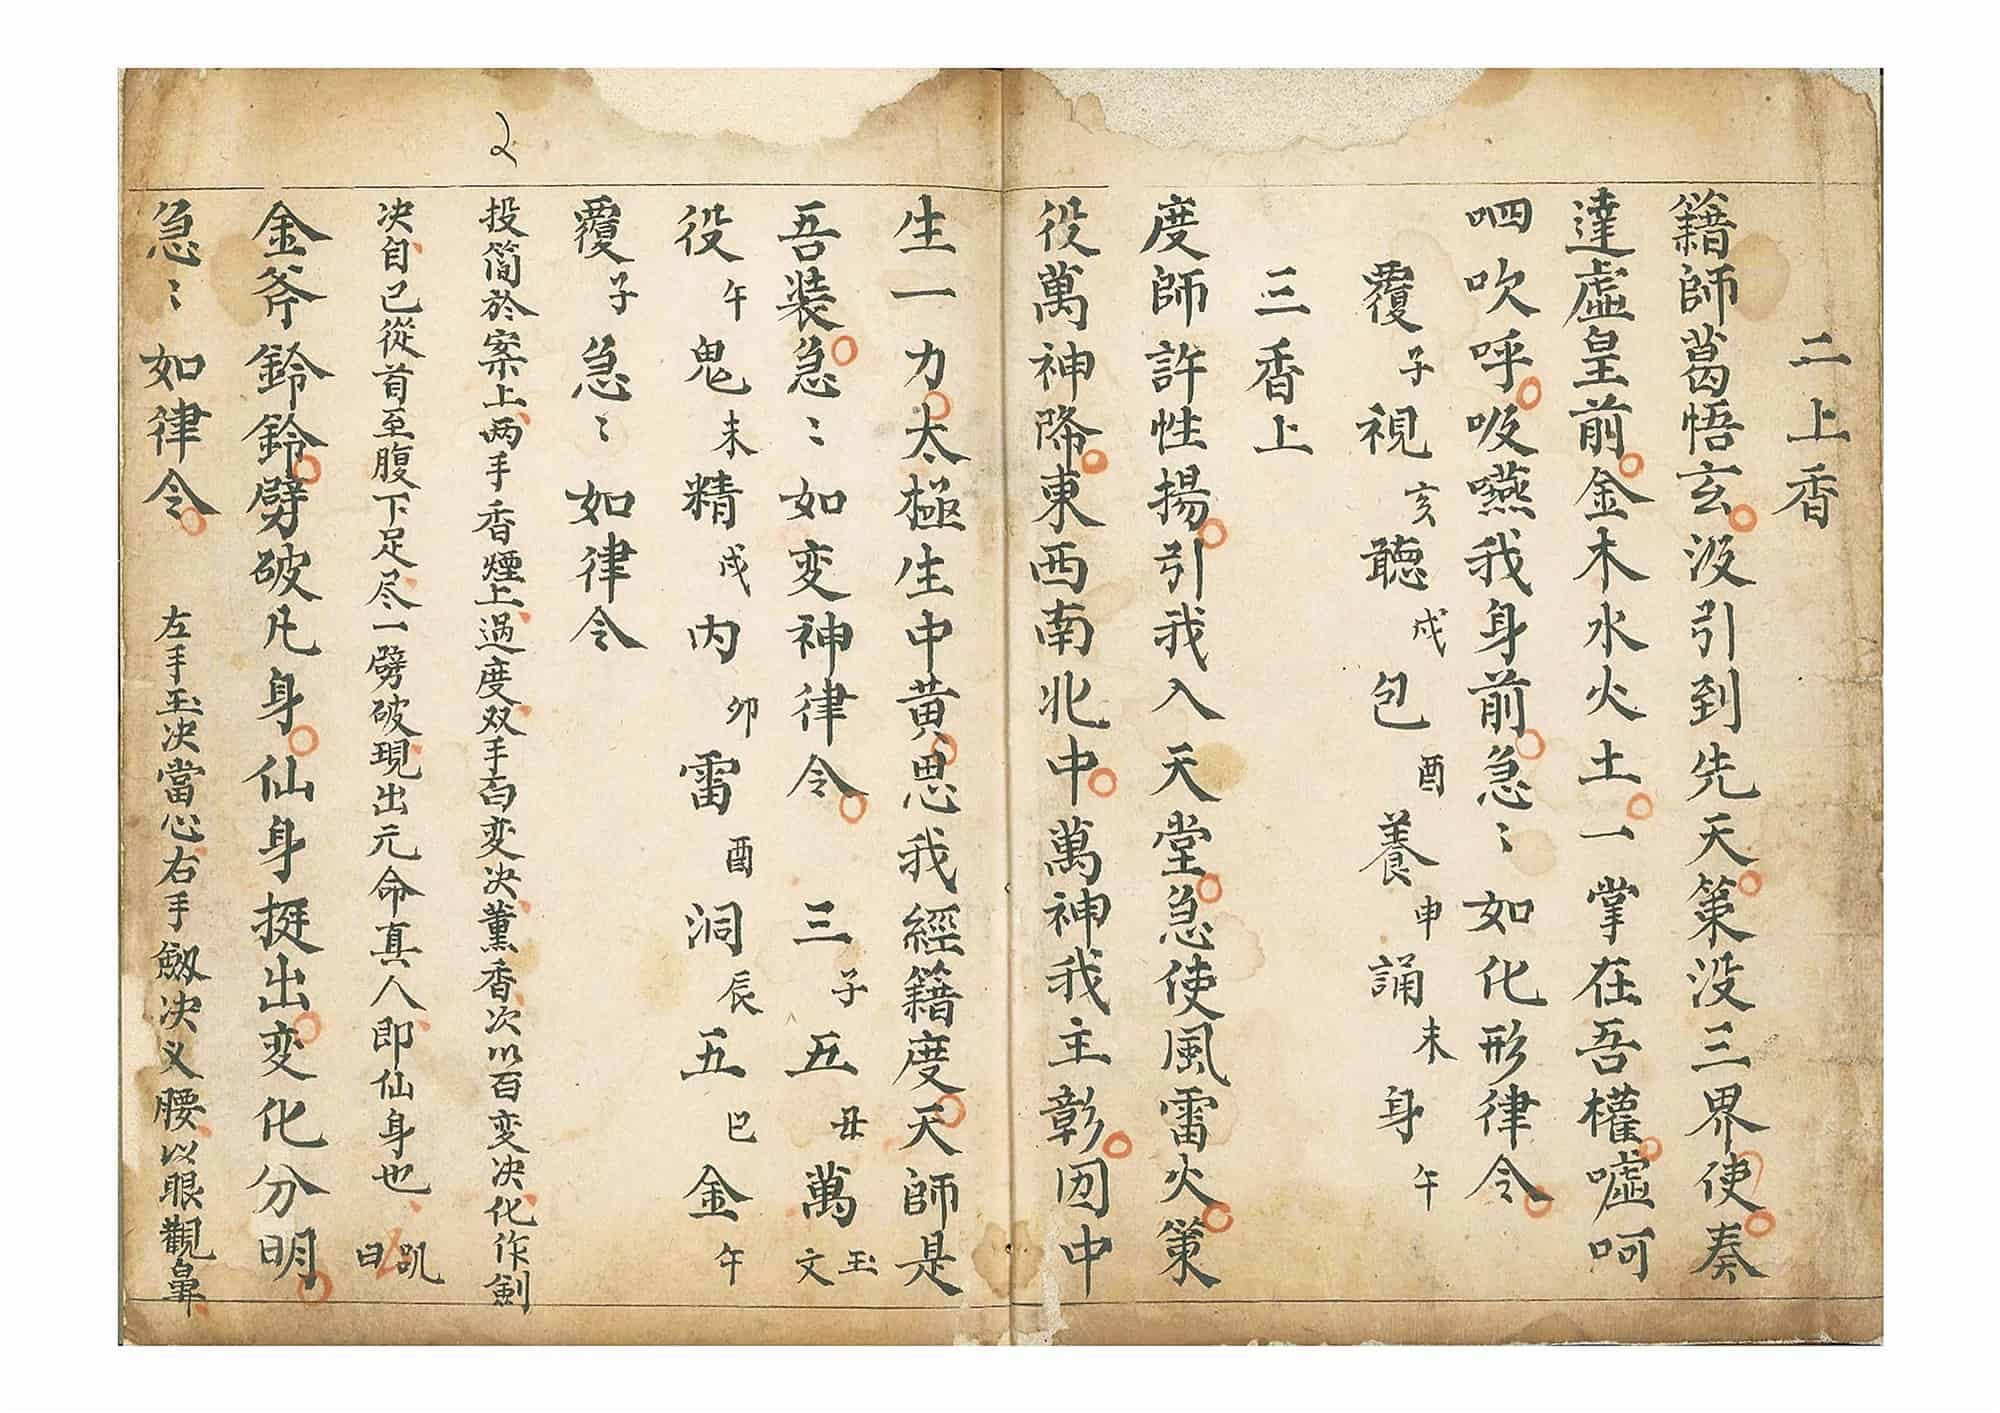 二上香
籍師葛悟玄。没引到先天。策没三界使。奏
達虛皇前。金木水火土。一掌在吾權。噓呵
呬吹呼。吸嚥我身前。急〻如化形律令。
覆子視亥聽戌包酉養申誦未身午
三香上
度師許性揚。引我入天堂。急使風雷火。策
役萬神降。東西南北中。萬神我主彰。因中
生一力。太極生中黄。思我經籍度。天師是
吾裝。急〻如変神律令。三子五丑萬玉文
役午鬼未精戌内卯雷酉洞辰五巳金午
覆子急〻如律令
投简於案上、两手香煙上、過度双手百変决、薰香、次以百变决、化作劍
决、自己從首至腹下足尽、一劈破、現出元命真人、即仙身也、 咒曰
金斧鈴鈴。劈破凡身。仙身挺出。変化分明。
急〻如律令。 左手玉决當心、右手劔决义腰、以眼觀鼻、
2